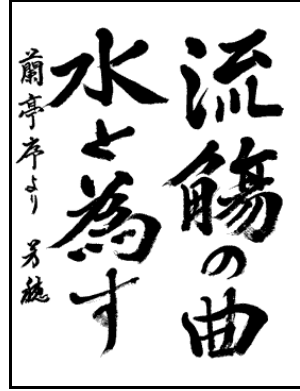 流觴の曲
水と為す
蘭亭序より 芳穂